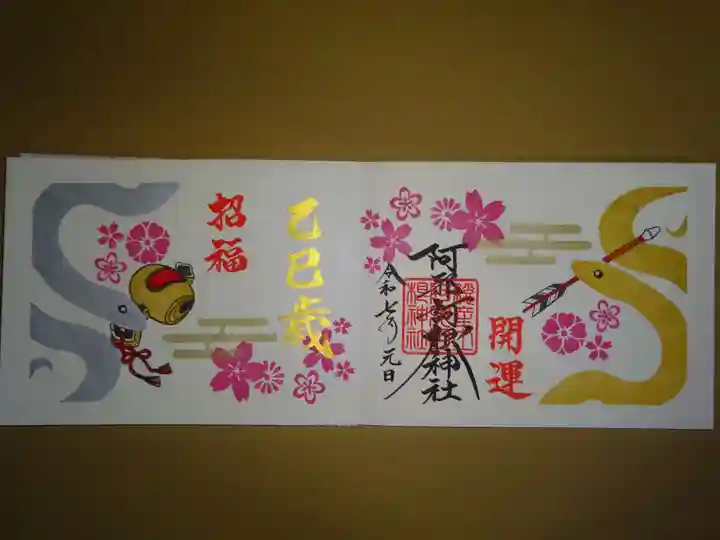 開運
阿邪訶根神社
令和七年元日
乙巳歳
招福